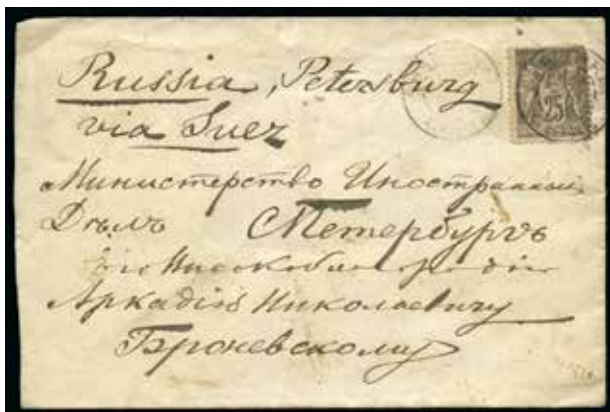 Russia, Petersburg
via Suez
Министерство Иностранныхъ
Дѣлъ С.Петербургъ
Его Высокоблагородію
Аркадію Николаевичу
Броневскому
25